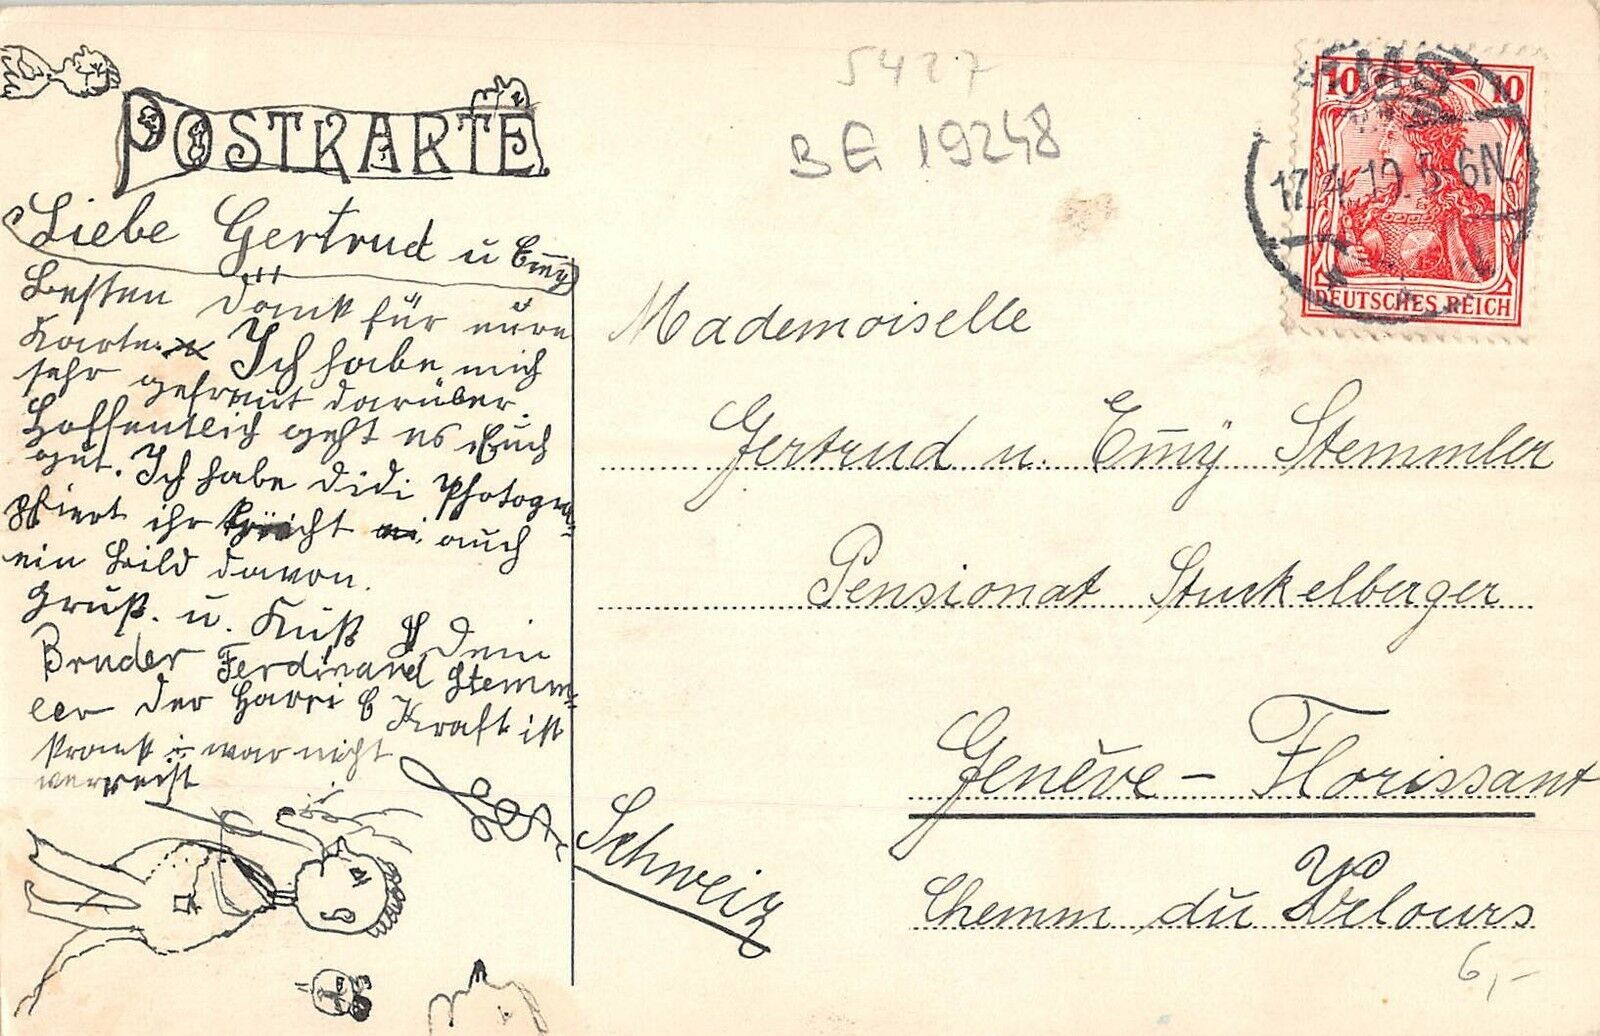 POSTKARTE
Liebe Gertrud u Em̅y
Besten Dank für eure
Karte. Ich habe mich
sehr gefreut darüber.
Hoffentlich geht es Euch
gut. Ich habe didi Photogra=
phiert ihr kriecht auch
ein Bild davon.
Gruß. u. Kuß Dein
Bruder Ferdinand Stemm=
ler der Harri Kraft ist
krank war nicht
verreist
5427
BG 19248
10 10
EMS
17.4.10 5-6N
DEUTSCHES REICH
Mademoiselle
Gertrud u. Em̅y Stemmler
Pensionat Stuckelberger
Genève - Florissant
Schweiz
Chemin du Velours
6,-